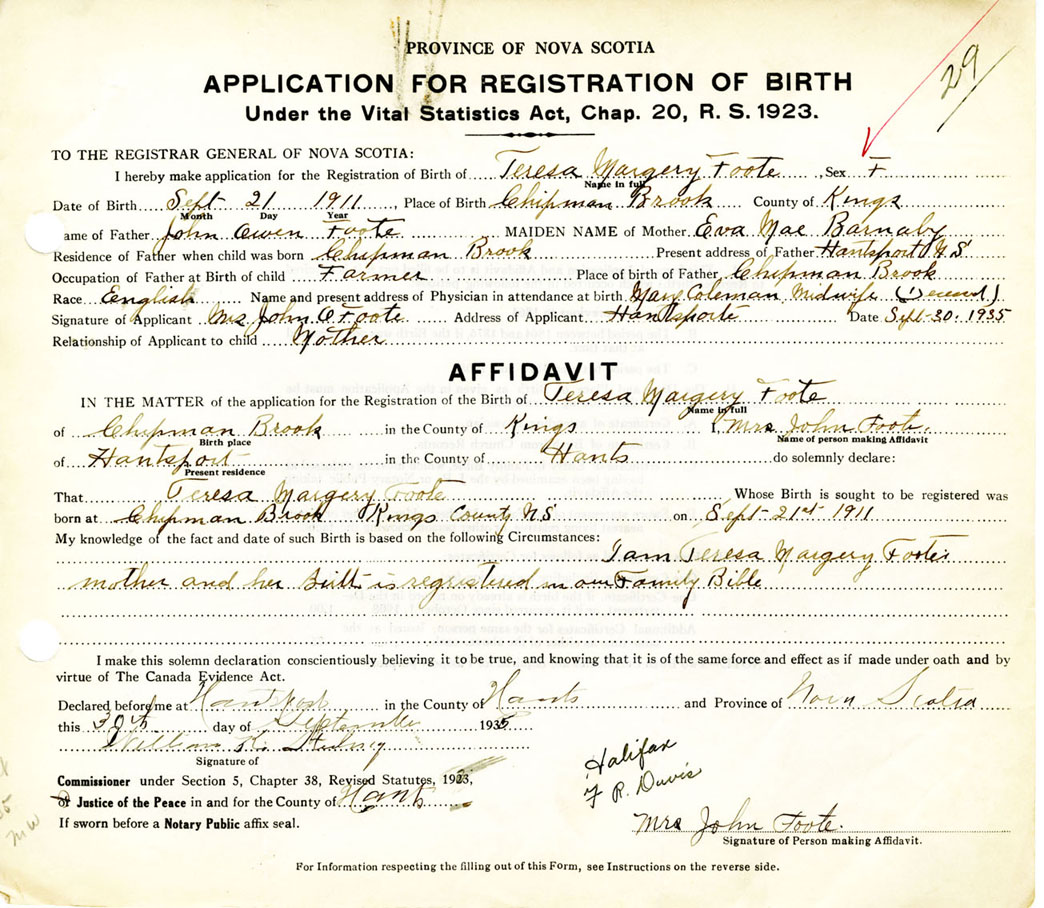 29
PROVINCE OF NOVA SCOTIA
APPLICATION FOR REGISTRATION OF BIRTH
Under the Vital Statistics Act, Chap. 20, R. S. 1923.
TO THE REGISTRAR GENERAL OF NOVA SCOTIA:
I hereby make application for the Registration of Birth of Teresa Margery Foote, Sex F
Name in full
Date of Birth Sept 21 1911, Place of Birth Chipman Brook County of Kings
Month Day Year
ame of Father John Owen Foote MAIDEN NAME of Mother Eva Mae Barnaby
Residence of Father when child was born Chipman Brook Present address of Father Hantsport N S
Occupation of Father at Birth of child Farmer Place of birth of Father Chipman Brook
Race English Name and present address of Physician in attendance at birth Mary Coleman Midwife
Signature of Applicant Mrs John O Foote Address of Applicant Hantsport Date Sept-30. 1935
Relationship of Applicant to child Mother
AFFIDAVIT
IN THE MATTER of the application for the Registration of the Birth of Teresa Margery Foote
Name in full
of Chipman Brook in the County of Kings I, Mrs John Foote.
Birth place Name of person making Affidavit
of Hantsport in the County of Hants do solemnly declare:
Present residence
That Teresa Margery Foote Whose Birth is sought to be registered was
born at Chipman Brook Kings County N S on Sept-21st 1911
My knowledge of the fact and date of such Birth is based on the following Circumstances:
I am Teresa Margery Footes
mother and her birth is regristered in our Family Bible
I make this solemn declaration conscientiously believing it to be true, and knowing that it is of the same force and effect as if made under oath and by
virtue of The Canada Evidence Act.
Declared before me at Hantsport in the County of Hants and Province of Nova Scotia
this 30th day of September 1935
William K.
Signature of
Halifax
F R. Davis
Commissioner under Section 5, Chapter 38, Revised Statutes, 1923,
or Justice of the Peace in and for the County of Hants
If sworn before a Notary Public affix seal.
Mrs John Foote.
Signature of Person making Affidavit.
For Information respecting the filling out of this Form, see Instructions on the reverse side.